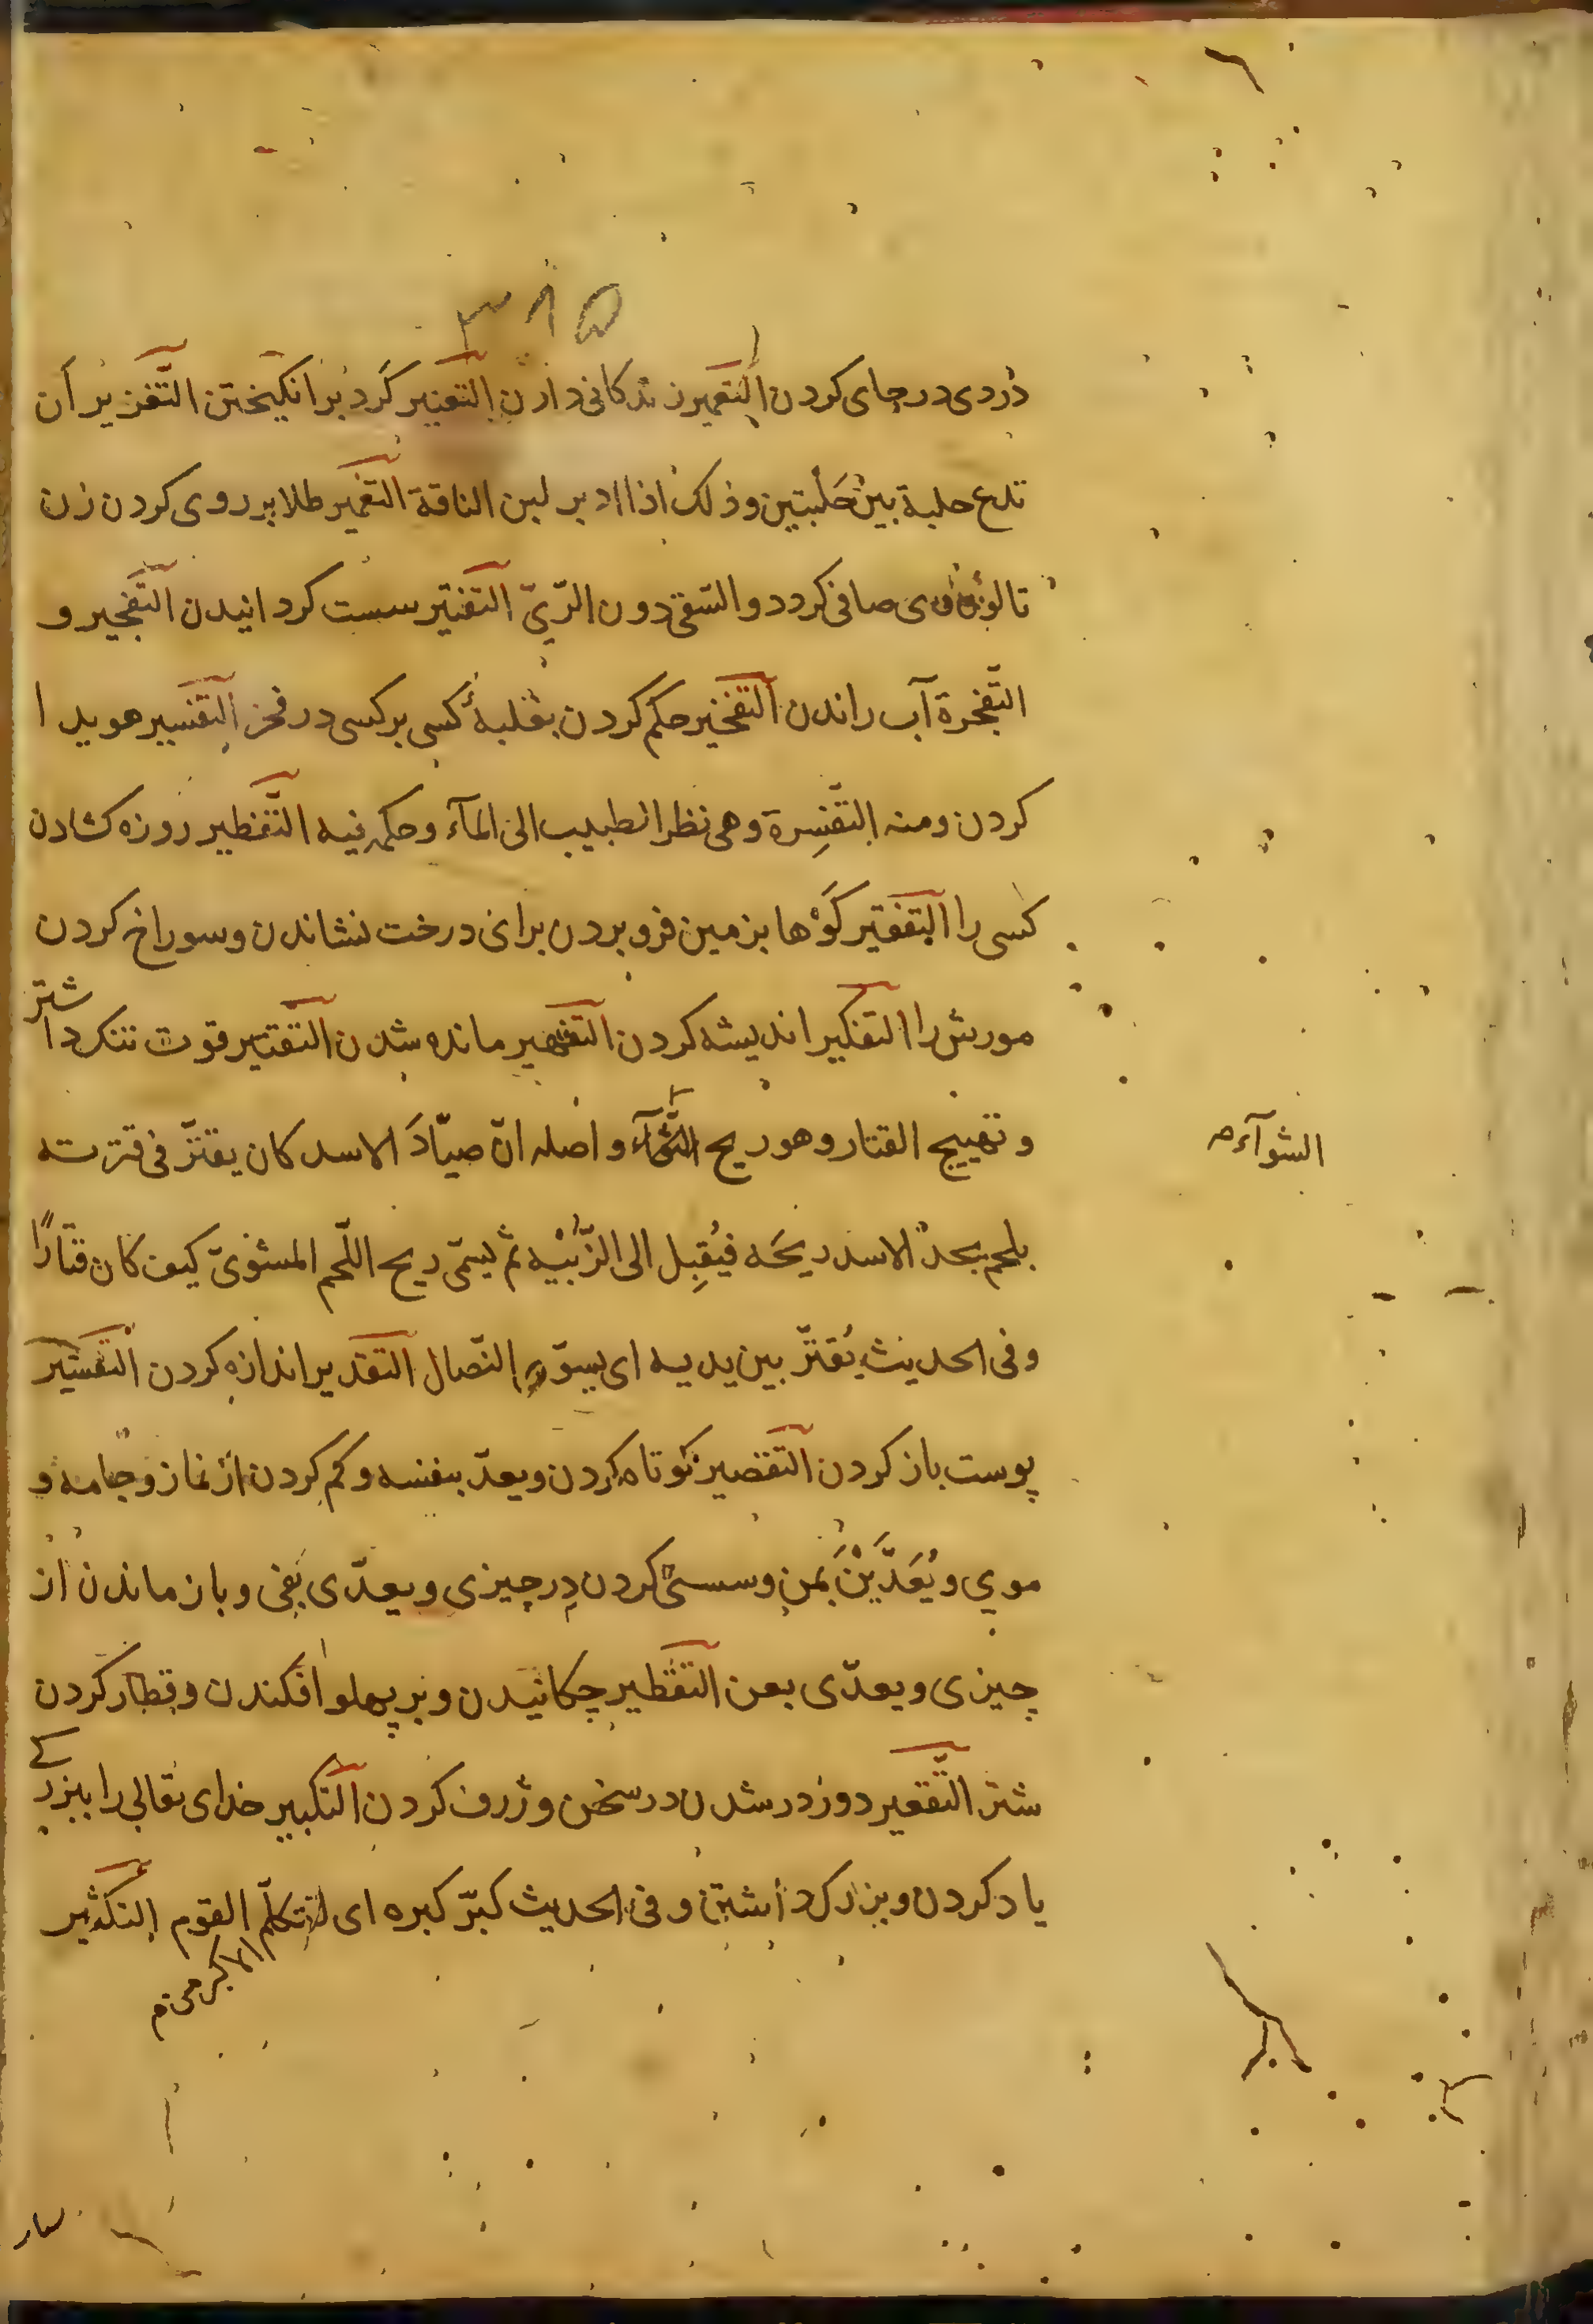 ٣١٥
دُردی در جای کردن التعمیر زندکانی دادن التغبیر کَرد برانکیختن التّغزیر ان
تدع حلبة بین حَلْبتین وذلک اذا ادبر لبن الناقة التغمیر طلا بر روی کردن زن
تا لون وی صافی کردد والسّقی دون الرّیّ التفتیر سست کردانیدن التفجیر و
التّفجرة آب راندن التفخیر حکم کردن بغلبهٔ کسی برکسی در فخر التفسیر هویدا
کردن ومنه التّفسِرة وهی نظر الطبیب الی المآء وحکمه فیه التّفطیر روزه کشادن
کسی را التفقیر کَوْها بزمین فرو بردن برای درخت نشاندن وسوراخ کردن
شتر
مورش را التفکیر اندیشه کردن التفهیر مانده شدن التّقتیر قوت تنک دا
وتهییج القتار وهو ریح الشوآء واصله انّ صیّادَ الاسد کان یقتّر فی قترته
الشوآء صہ
بلحم یجد الاسد ریحَه فیُقبِل الی الزّبْیه ثم یسمّی ریح اللّحم المشویّ کیف کان قتارًا
وفی الحدیث یُقتّر بین یدیه ای یسوّی النّصال التقدیر اندازه کردن التقشیر
پوست باز کردن التقصیر کوتاه کردن ویعدّ بنفسه وکم کردن از نماز وجامه و
موی ویُعَدَّیْن بمن وسستی کردن در چیزی ویعدّی بفی وباز ماندن از
چیزی ویعدّی بعن التقطیر چکانیدن وبر پهلو افکندن وقطار کردن
شتر التّقعیر دور در شدن در سخن وژرف کردن التکبیر خدای تعالی را ببزر
کے
یاد کردن وبزرک داشتن وفی الحدیث کبّر کبره ای لیتکلّم القوم التکثیر
الاکبر